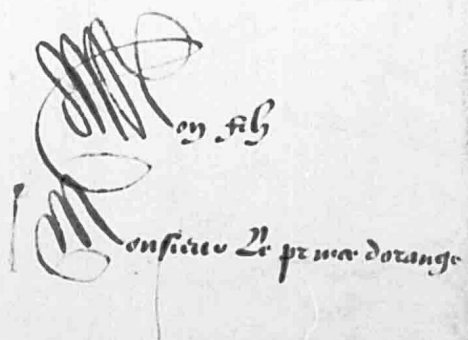 Mon filz
Monsieur Le prince dorange